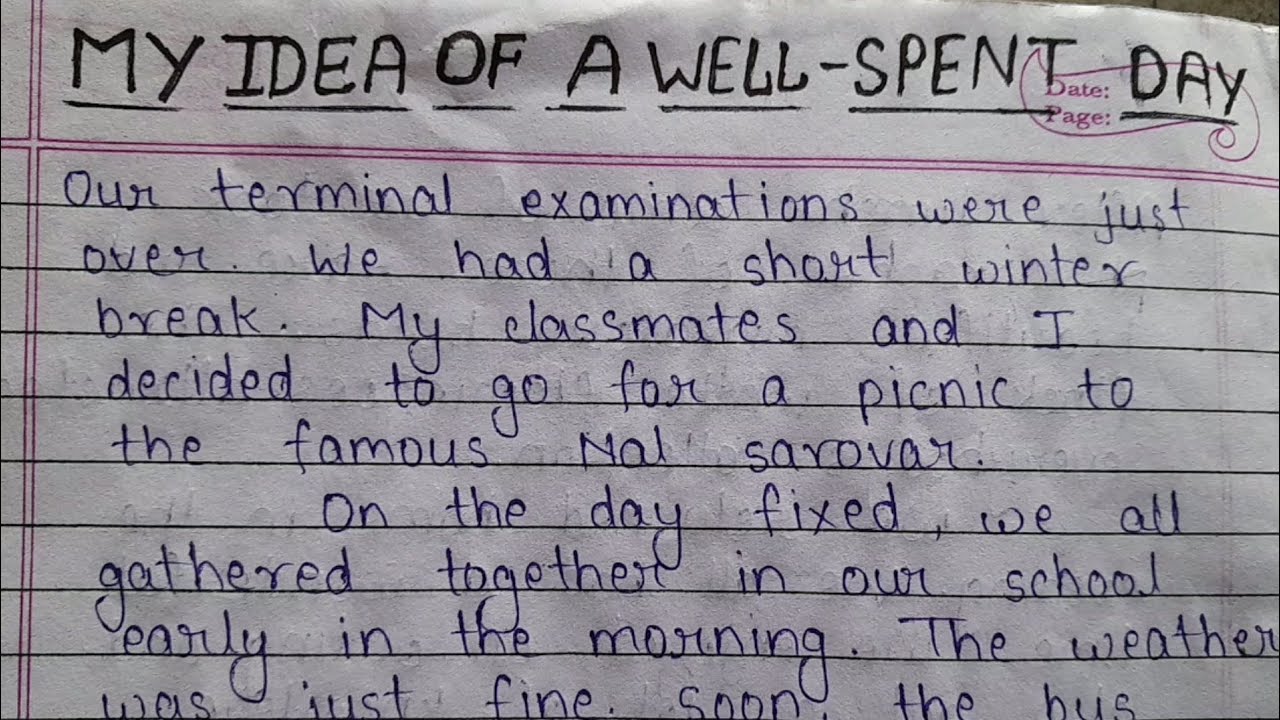 MY IDEA OF A WELL-SPENT DAY
Date:
Page:
Our terminal examinations were just
over. We had a short winter
break. My classmates and I
decided to go for a picnic to
the famous Nal sarovar.
On the day fixed, we all
gathered together in our school
early in the morning. The weather
was just fine. soon, the bus